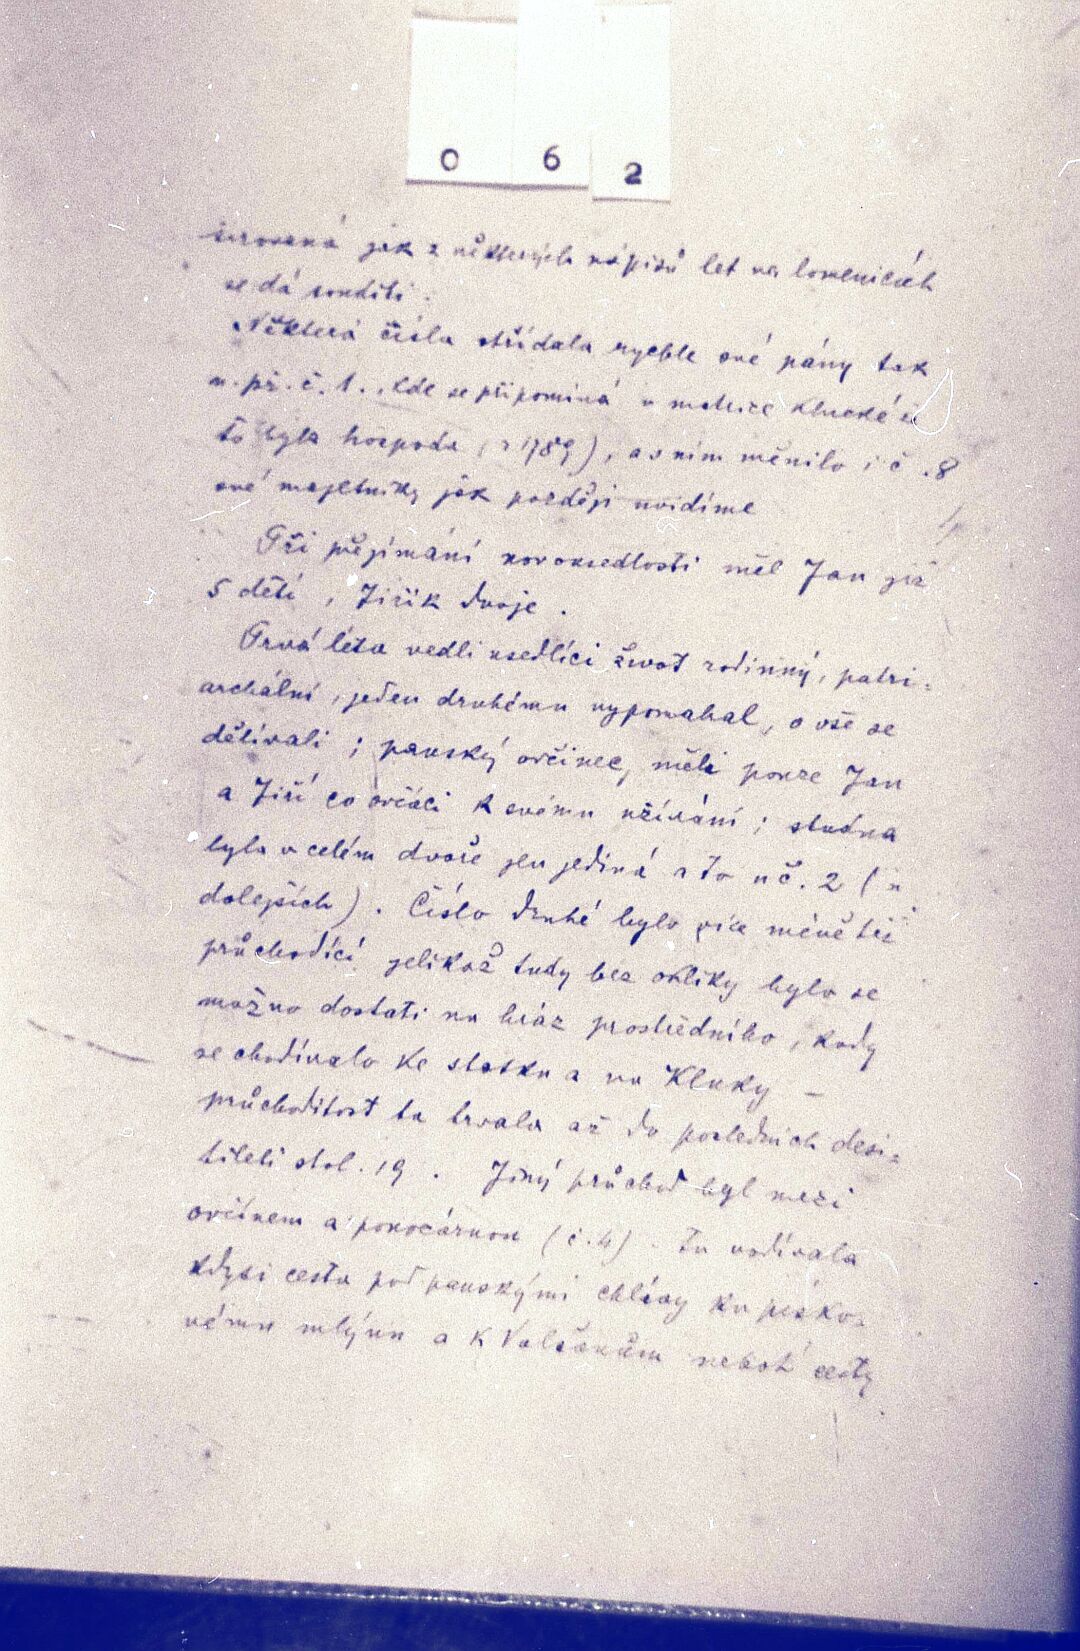 0 6 2
jak z některých nápisů let na lomenicích
se dá souditi.
Některá čísla střídala rychle své pány tak
n.př. č. 1., kde se připomíná v matrice Klucké že
to byla hospoda, (r 1789), a s ním měnilo i č. 8
své majetníky jak později uvidíme
Při přejímání novousedlosti měl Jan již
5 dětí, Jiřík dvoje.
Prvá léta vedli usedlíci život rodinný, patri-
archální, jeden druhému vypomahal, o vše se
dělívali; panský ovčinec, měli pouze Jan
a Jiří co ovčáci k svému užívání; studna
byla v celém dvoře jen jediná a to u č. 2 (u
dolejších). Číslo druhé bylo více méně též
průchodící jelikož tudy bez okliky bylo se
možno dostati na hráz prostředního, kudy
se chodívalo ke statku a na Kluky –
průchoditost ta trvala až do posledních desi-
tiletí stol. 19. Jiný průchod byl mezi
ovčínem a ponocárnou (č. 4). Tu vodívala
kdysi cesta pod panskými chlévy ku písko-
vému mlýnu a k Valšíkům neboť cesty